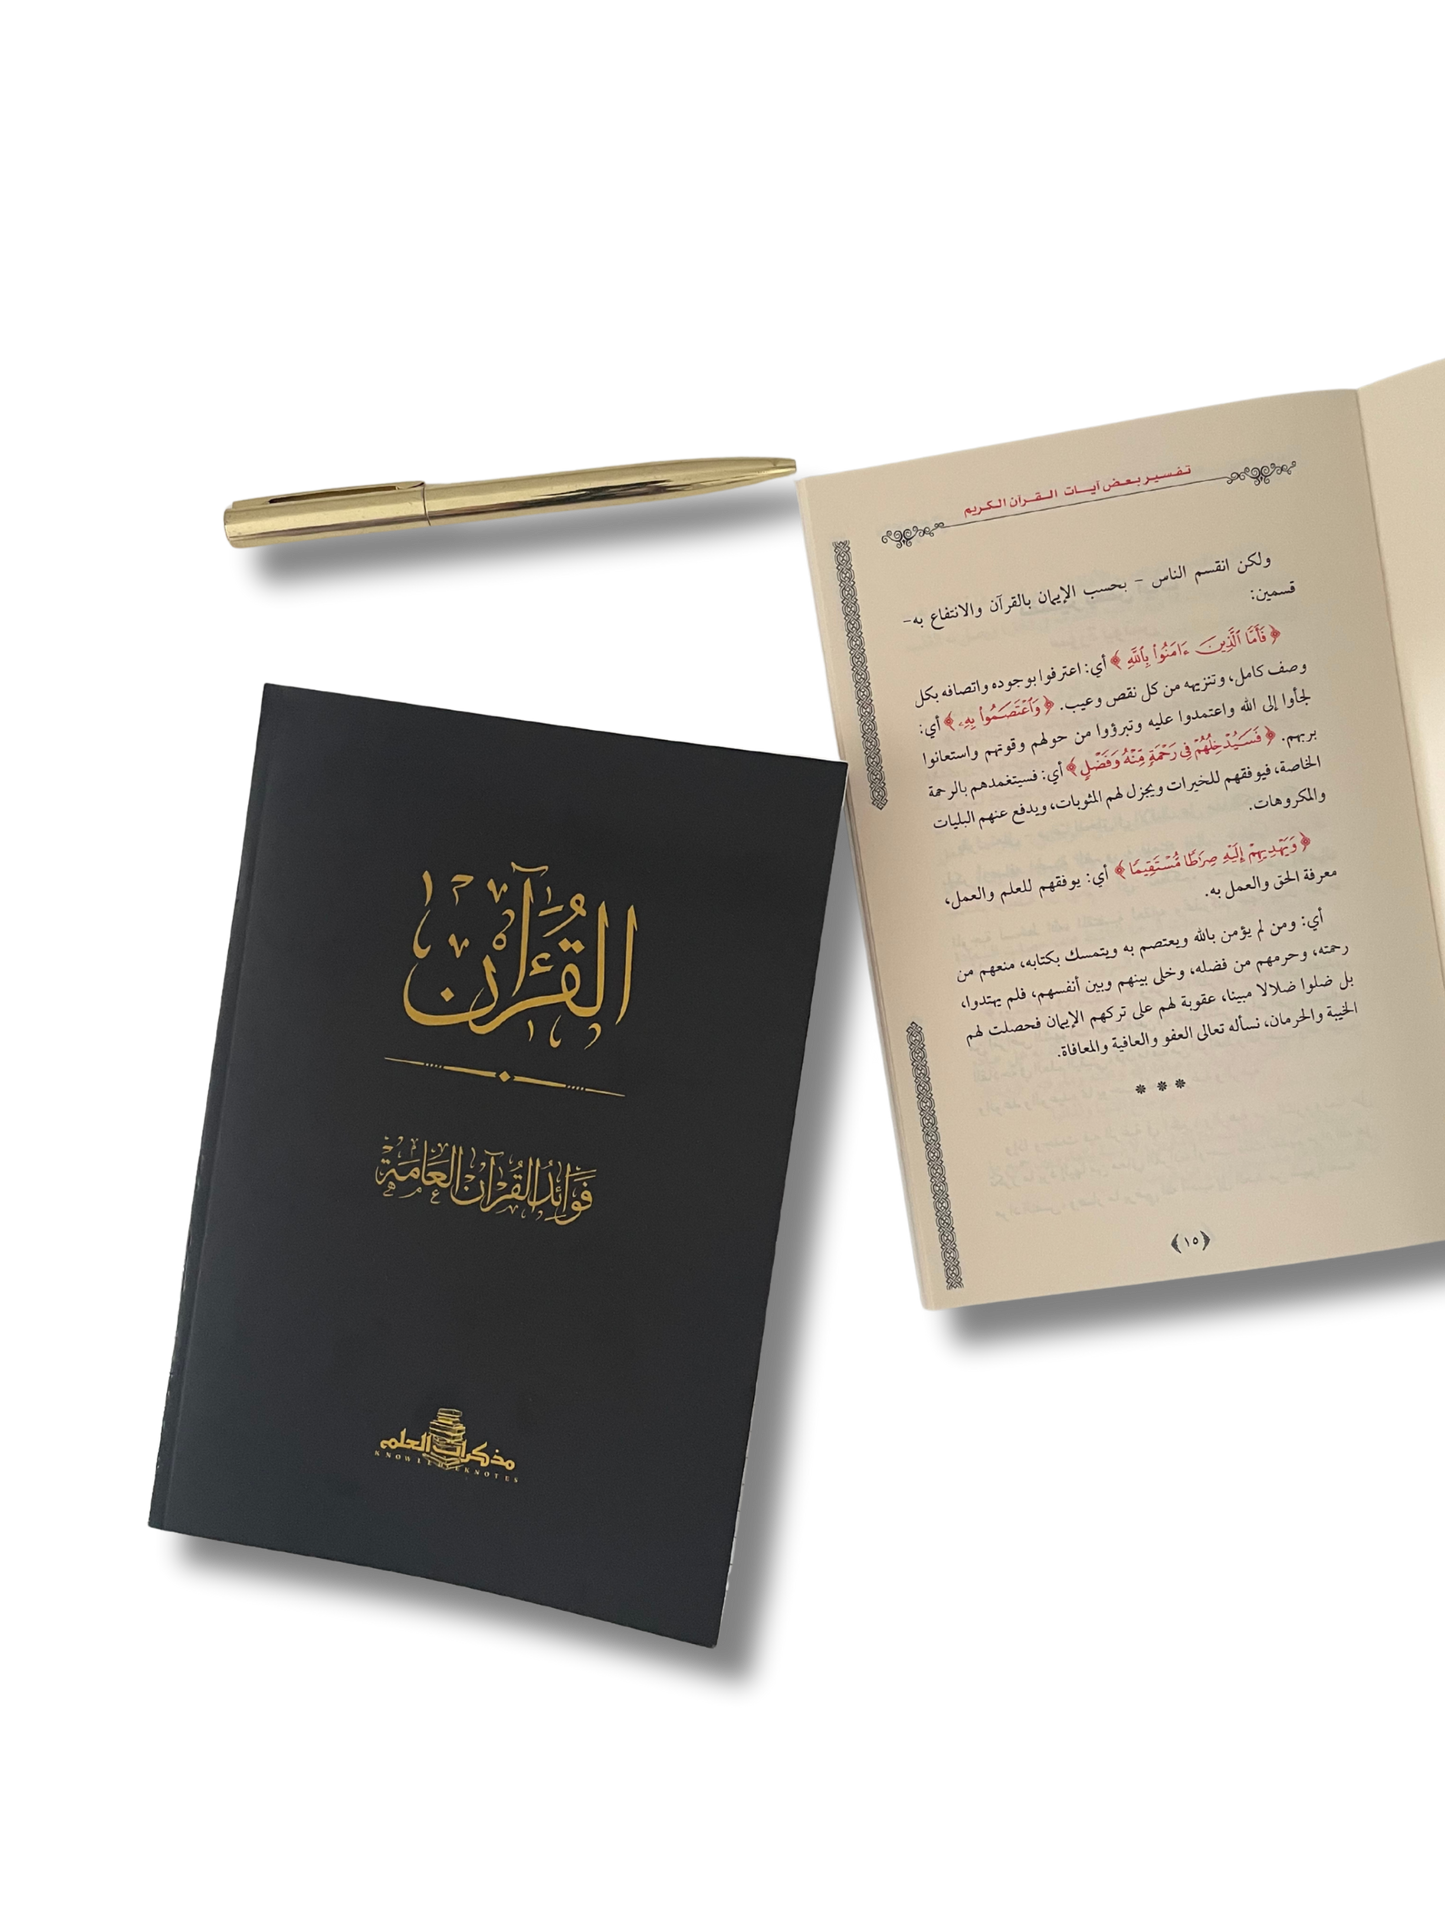 القُرْآن
فَوَائِدُ القُرْآن العَامَة
مذكرات العلم
KNOWLEDGEKNOTES
تفسير بعض آيات القرآن الكريم
ولكن انقسم الناس - بحسب الإيمان بالقرآن والانتفاع به-
قسمين:
﴿فَأَمَّا ٱلَّذِينَ ءَامَنُوا۟ بِٱللَّهِ﴾ أي: اعترفوا بوجوده واتصافه بكل
وصف كامل، وتنزيهه من كل نقص وعيب. ﴿وَٱعْتَصَمُوا۟ بِهِۦ﴾ أي:
لجأوا إلى الله واعتمدوا عليه وتبرؤوا من حولهم وقوتهم واستعانوا
بربهم. ﴿فَسَيُدْخِلُهُمْ فِى رَحْمَةٍ مِّنْهُ وَفَضْلٍ﴾ أي: فسيتغمدهم بالرحمة
الخاصة، فيوفقهم للخيرات ويجزل لهم المثوبات، ويدفع عنهم البليات
والمكروهات.
﴿وَيَهْدِيهِمْ إِلَيْهِ صِرَٰطًا مُّسْتَقِيمًا﴾ أي: يوفقهم للعلم والعمل،
معرفة الحق والعمل به.
أي: ومن لم يؤمن بالله ويعتصم به ويتمسك بكتابه، منعهم من
رحمته، وحرمهم من فضله، وخلى بينهم وبين أنفسهم، فلم يهتدوا،
بل ضلوا ضلالا مبينا، عقوبة لهم على تركهم الإيمان فحصلت لهم
الخيبة والحرمان، نسأله تعالى العفو والعافية والمعافاة.
* * *
﴿١٥﴾